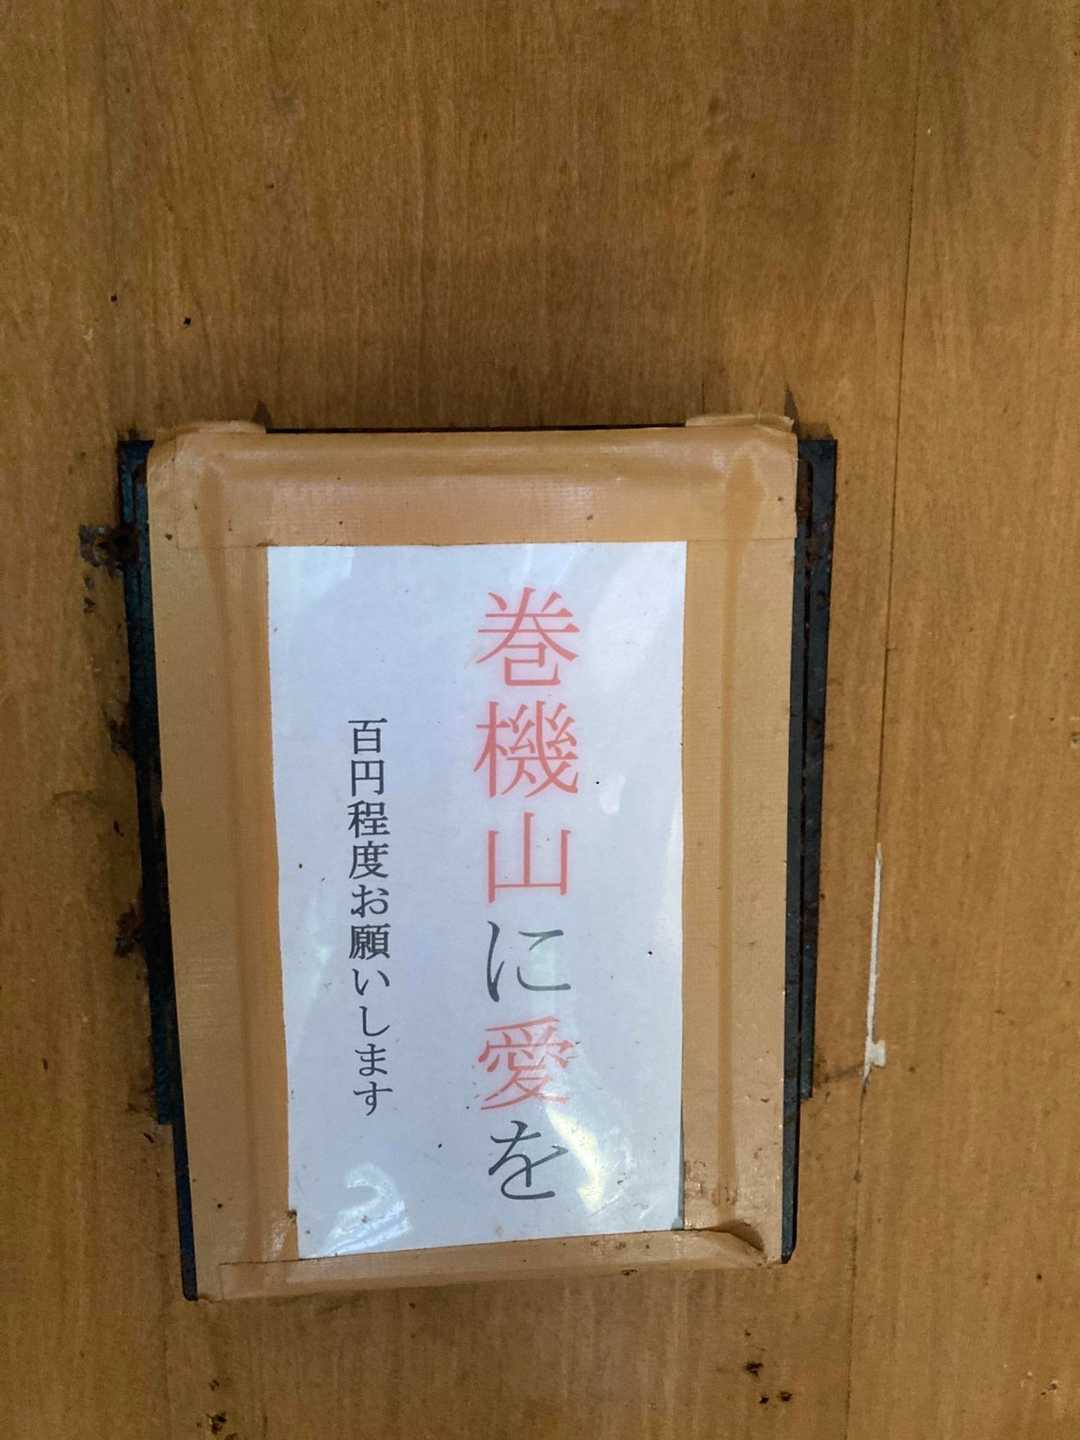 巻機山に愛を
百円程度お願いします